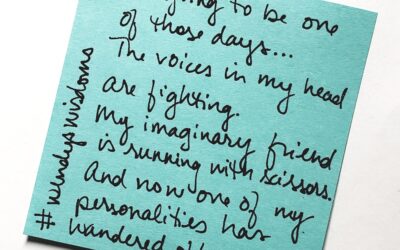 to be one
of those days...
The voices in my head
are fighting.
My imaginary friend
is running with scissors.
And now one of my
personalities has
wandered
#wendyswisdoms